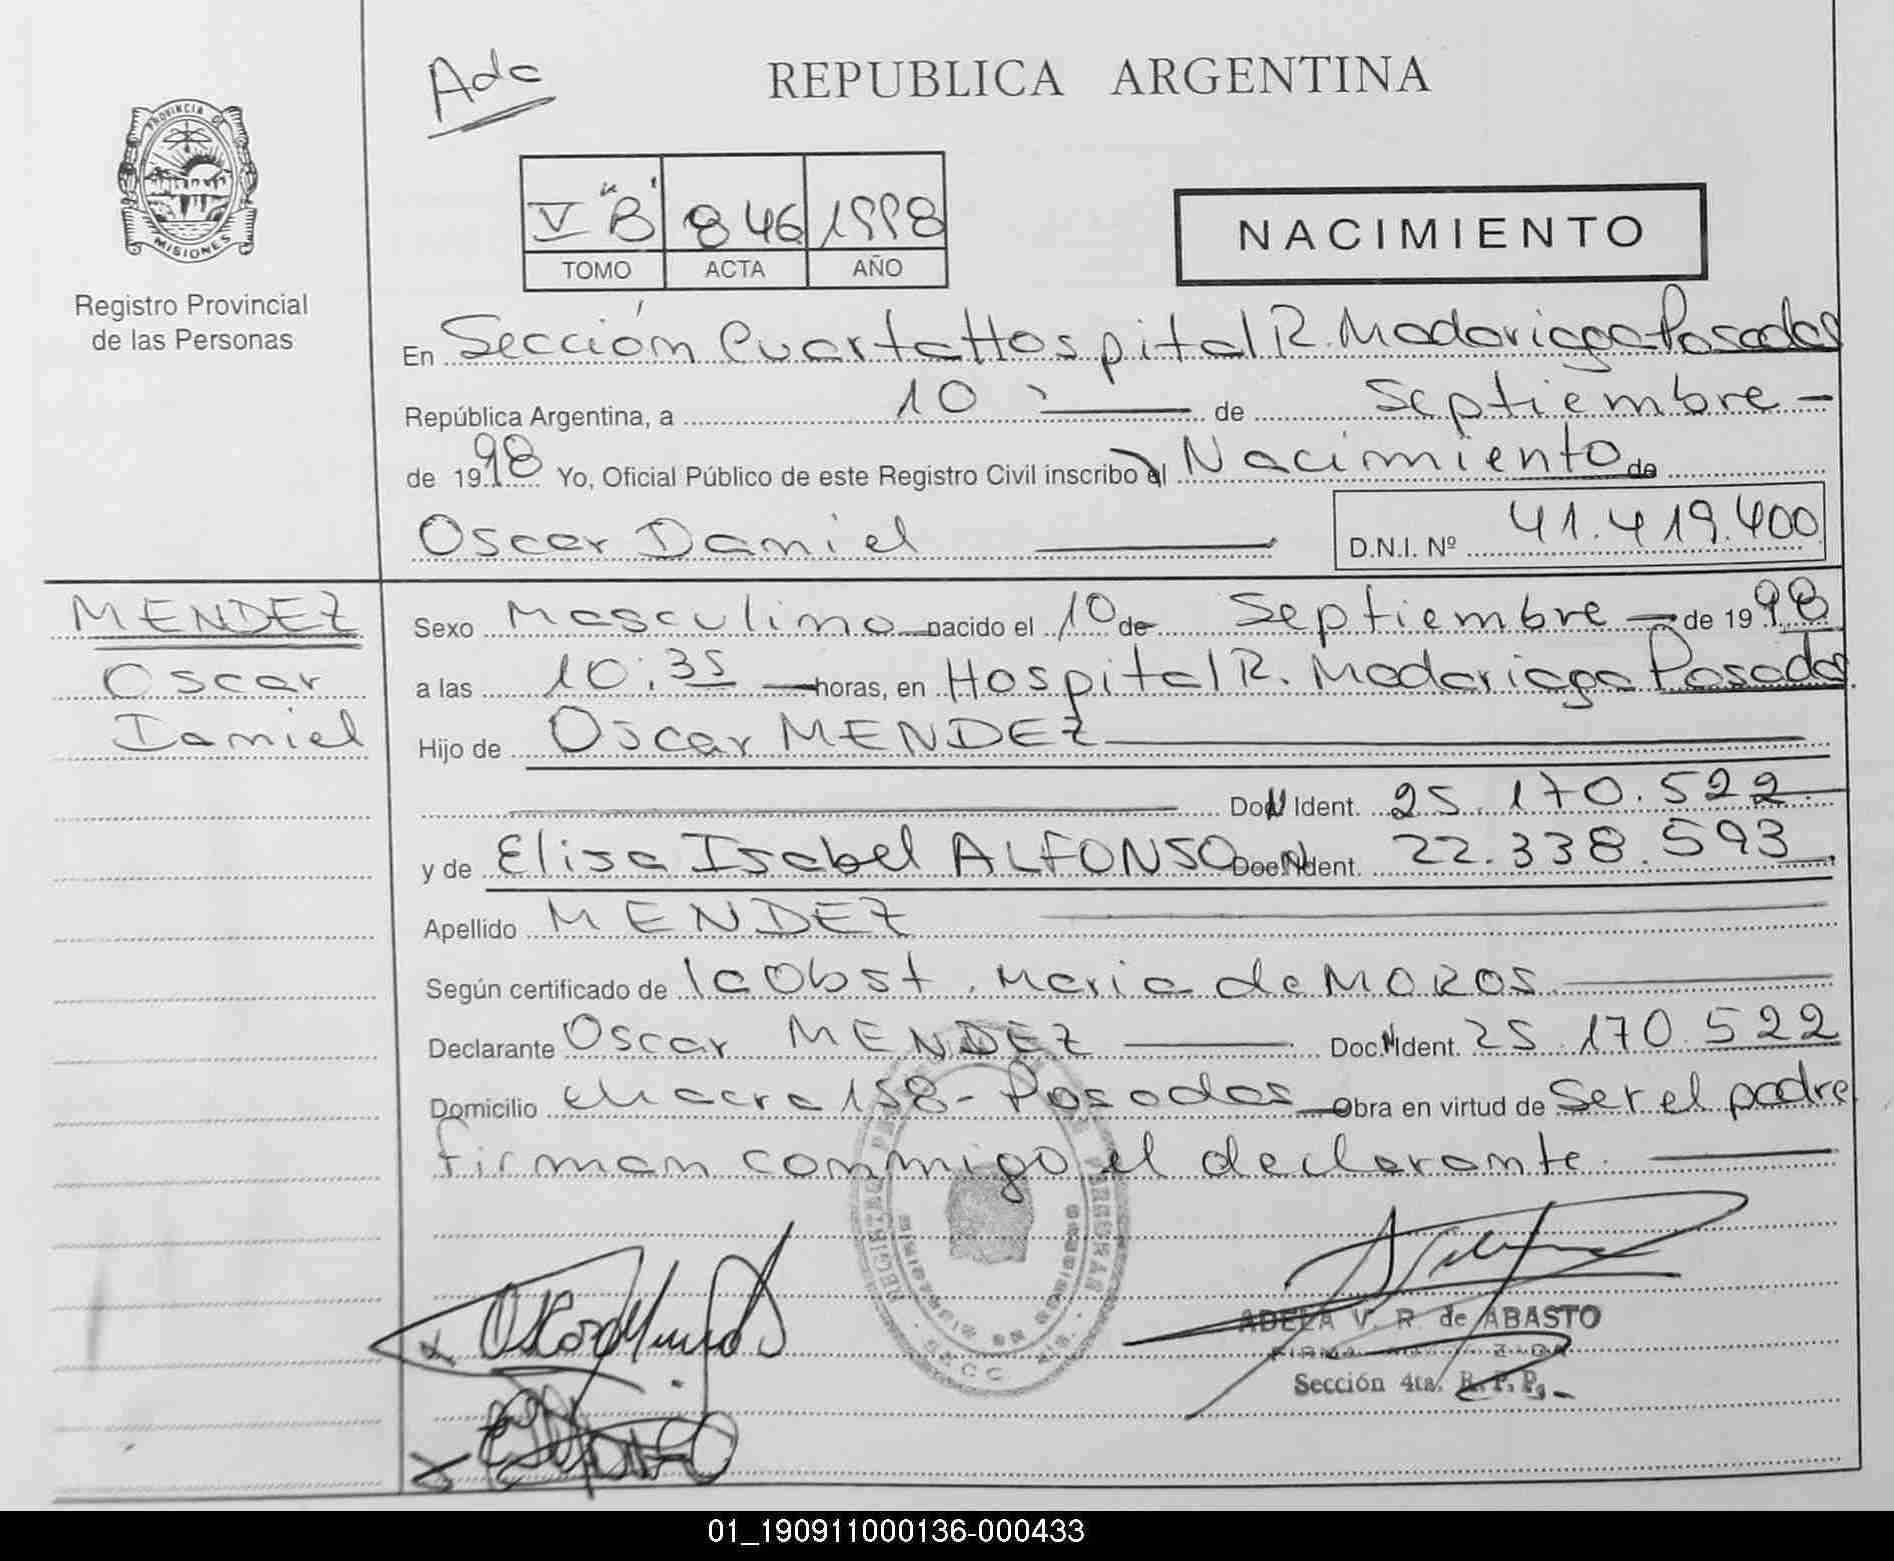 Ada
REPUBLICA ARGENTINA
PROVINCIA DE
MISIONES
Registro Provincial
de las Personas
V "B" 846 1998
TOMO ACTA AÑO
NACIMIENTO
En Sección Cuarta Hospital R. Madariaga Posadas
República Argentina, a 10 de Septiembre
de 1998 Yo, Oficial Público de este Registro Civil inscribo el Nacimiento de
Oscar Daniel D.N.I. Nº 41.419.400
MENDEZ
Oscar
Daniel
Sexo Masculino nacido el 10 de Septiembre de 1998
a las 10:35 horas, en Hospital R. Madariaga Posadas
Hijo de Oscar MENDEZ
Doc N Ident. 25.170.522
y de Elisa Isabel ALFONSO Doc N Ident. 22.338.593
Apellido MENDEZ
Según certificado de la Obst. Maria de MOROS
Declarante Oscar MENDEZ Doc. N Ident. 25.170.522
Domicilio Chacra 158 - Posadas Obra en virtud de Ser el padre
firman conmigo el declarante.
ADELA V. R. de ABASTO
Sección 4ta. R. P. P.
01_190911000136-000433